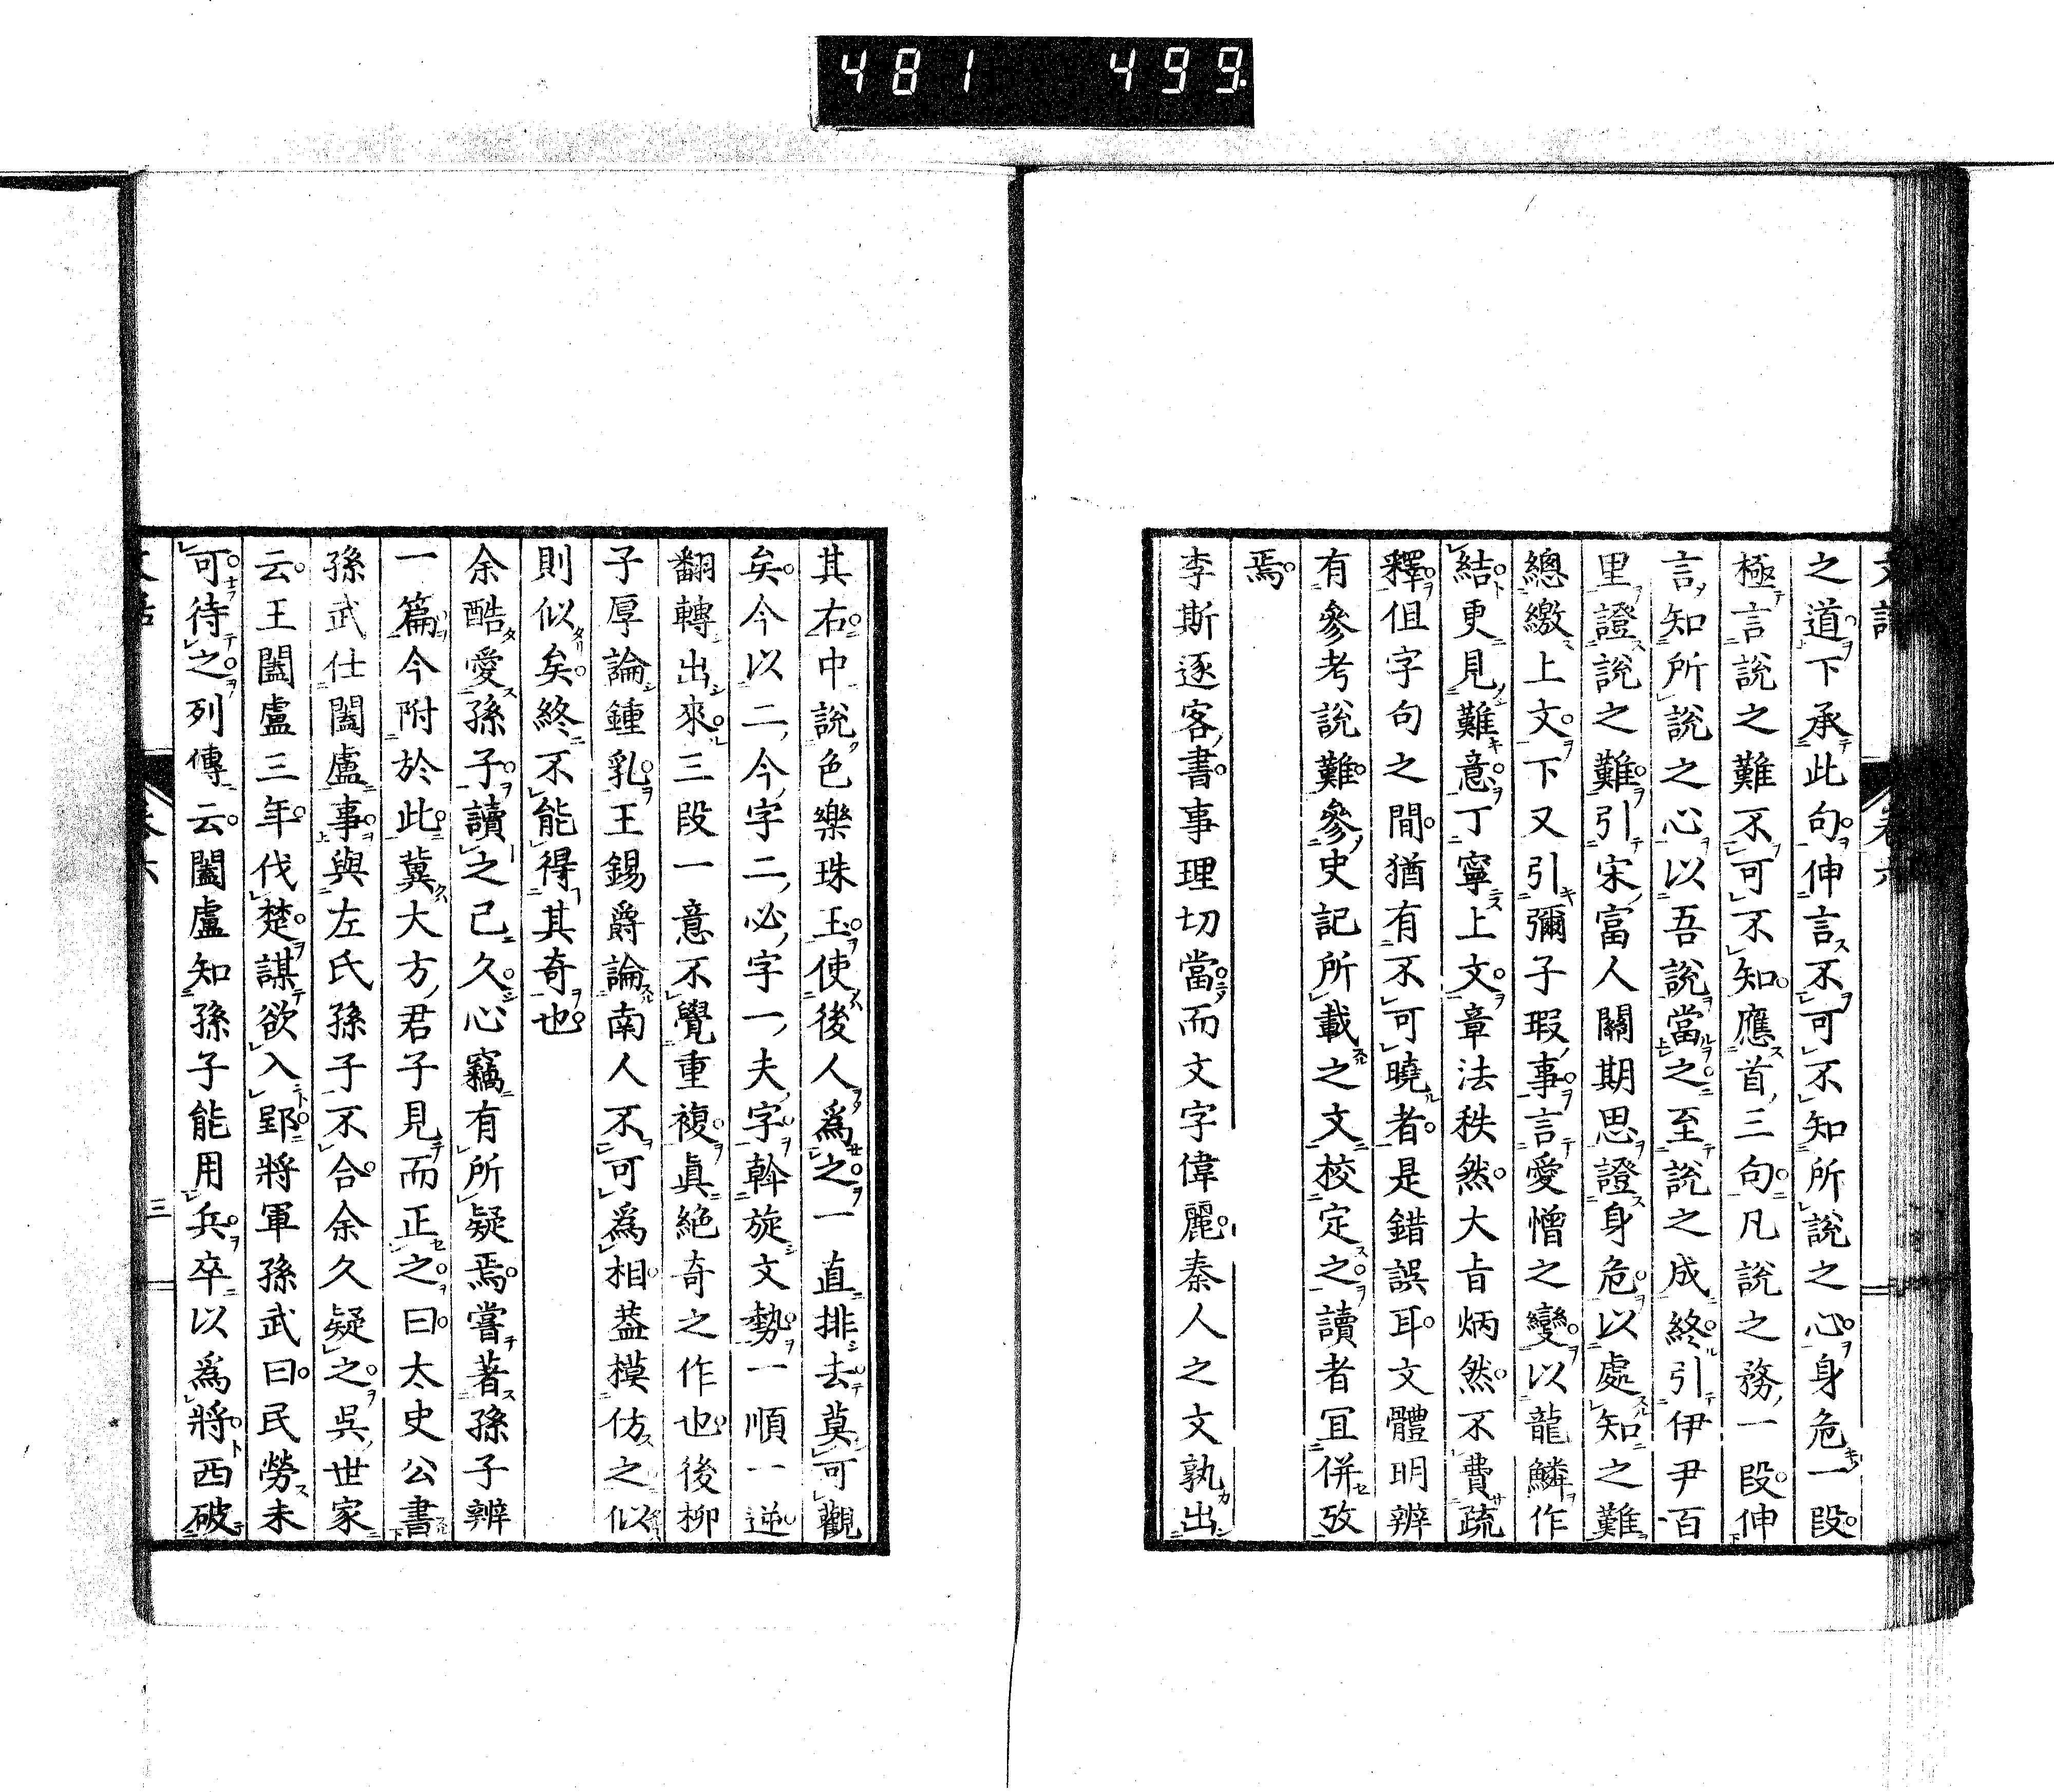 481 499
之道下承此句伸言不可不知所說之心身危一段
極言說之難不可不知應首三句凡說之務一段伸
言知所說之心以吾說當之至說之成終引伊尹百
里證說之難引宋富人關期思證身危以處知之難
總繳上文下又引彌子瑕事言愛憎之變以龍鱗作
結更見難意丁寧上文章法秩然大旨炳然不費疏
釋但字句之間猶有不可曉者是錯誤耳文體明辨
有參考說難參史記所載之文校定之讀者宜併攷
焉
李斯逐客書事理切當而文字偉麗秦人之文孰出
其右中說色樂珠玉使後人爲之一直排去莫可觀
矣今以二今字二必字一夫字斡旋文勢一順一逆
翻轉出來三段一意不覺重複眞絕奇之作也後柳
子厚論鍾乳王錫爵論南人不可爲相葢模仿之似
則似矣終不能得其奇也
余酷愛孫子讀之已久心竊有所疑焉嘗著孫子辨
一篇今附於此冀大方君子見而正之曰太史公書
孫武仕闔盧事與左氏孫子不合余久疑之吳世家
云王闔盧三年伐楚謀欲入郢將軍孫武曰民勞未
可待之列傳云闔盧知孫子能用兵卒以爲將西破
三